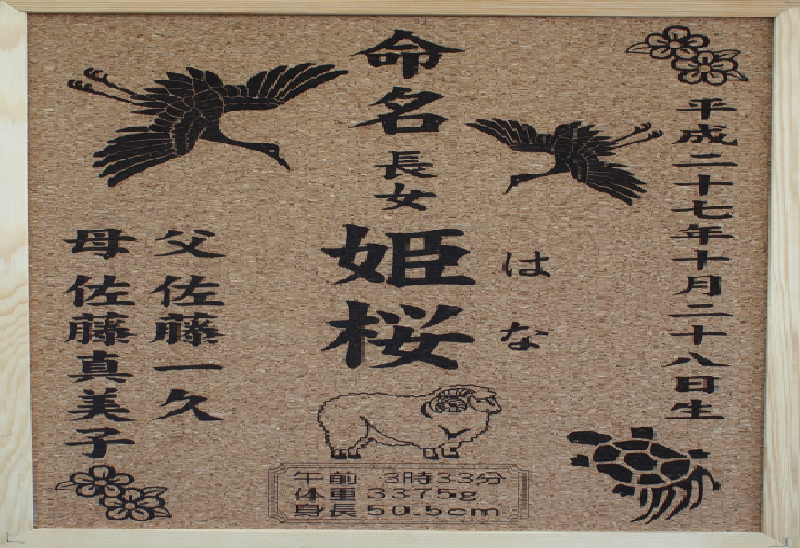 平成二十七年十月二十八日生
命名
長女
姫桜
はな
父 佐藤一久
母 佐藤真美子
午前 3時33分
体重3375g
身長50.5cm